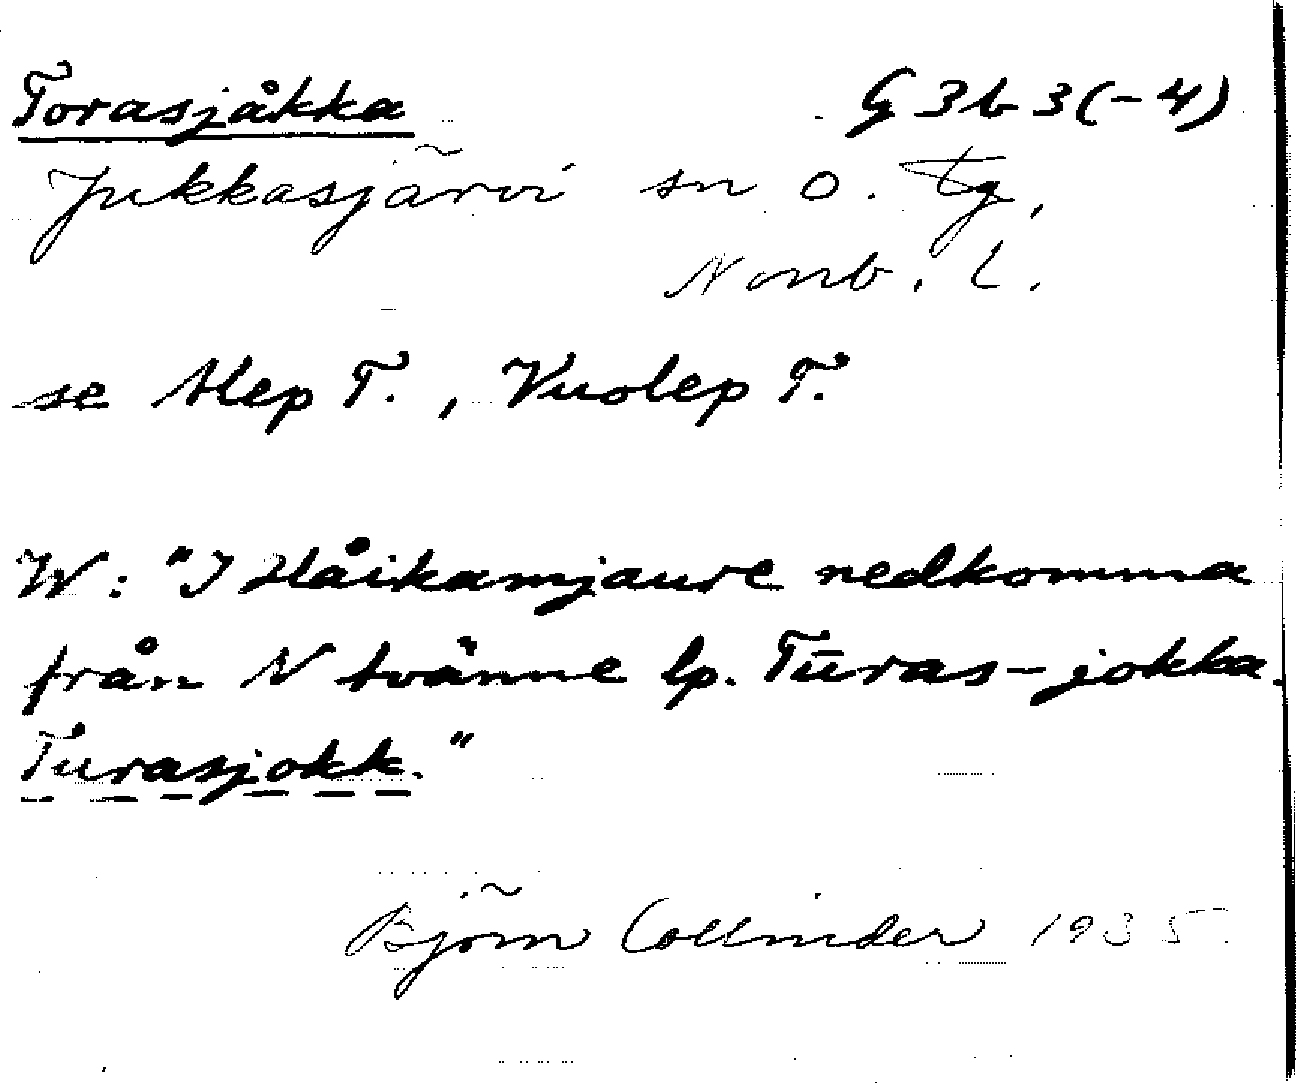 Torasjåkka G 3b 3(-4)
Jukkasjärvi sn o. tg,
Norrb. l.
se Alep T., Vuolep T.
W: "I Håikamjaure nedkomma
från N tvänne lp. Tūras-jokka.
Turasjokk."
Björn Collinder 1935